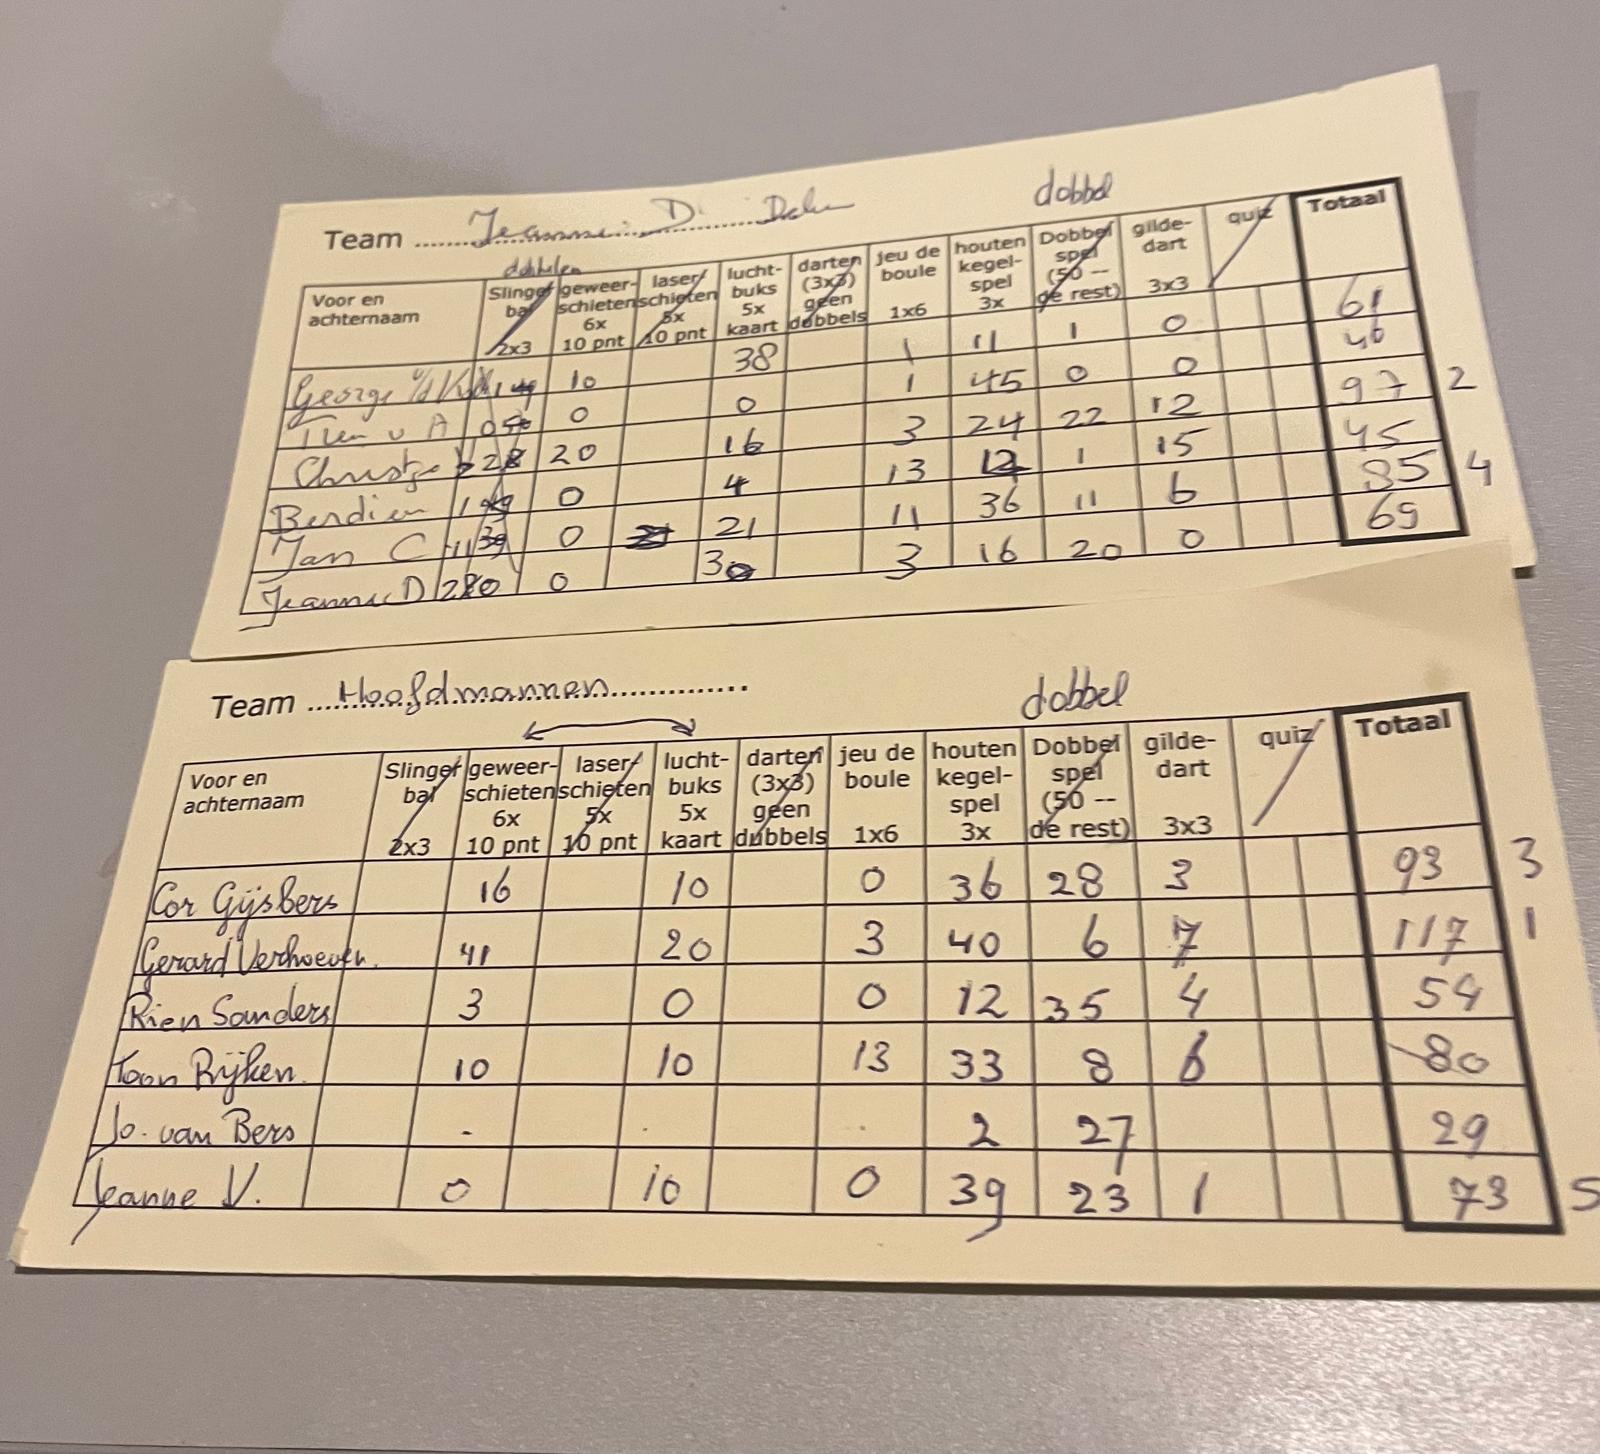 Team
dobbel
dobbelen
Voor en achternaam Slinger bal 2x3 geweer-schieten 6x 10 pnt laser/ schieten 5x 10 pnt lucht-buks 5x kaart darten (3x3) geen dubbels jeu de boule 1x6 houten kegel-spel 3x Dobbel spel (50 -- de rest) gilde-dart 3x3 quiz Totaal
George 10 38 1 11 1 0 61
0 0 1 45 0 0 46
20 16 3 24 22 12 97 2
Berdien 0 4 13 12 1 15 45
Jan C 0 21 11 36 11 6 85 4
Jeanne D 280 0 30 3 16 20 0 69
Team Hoofdmannen
dobbel
Voor en achternaam Slinger bal 2x3 geweer-schieten 6x 10 pnt laser/ schieten 5x 10 pnt lucht-buks 5x kaart darten (3x3) geen dubbels jeu de boule 1x6 houten kegel-spel 3x Dobbel spel (50 -- de rest) gilde-dart 3x3 quiz Totaal
Cor Gijsbers 16 10 0 36 28 3 93 3
Gerard Verhoeven. 41 20 3 40 6 7 117 1
Rien Sanders 3 0 0 12 35 4 54
Toon Rijken. 10 10 13 33 8 6 80
Jo. van Bers - . .. 2 27 29
Jeanne V. 0 10 0 39 23 1 73 5